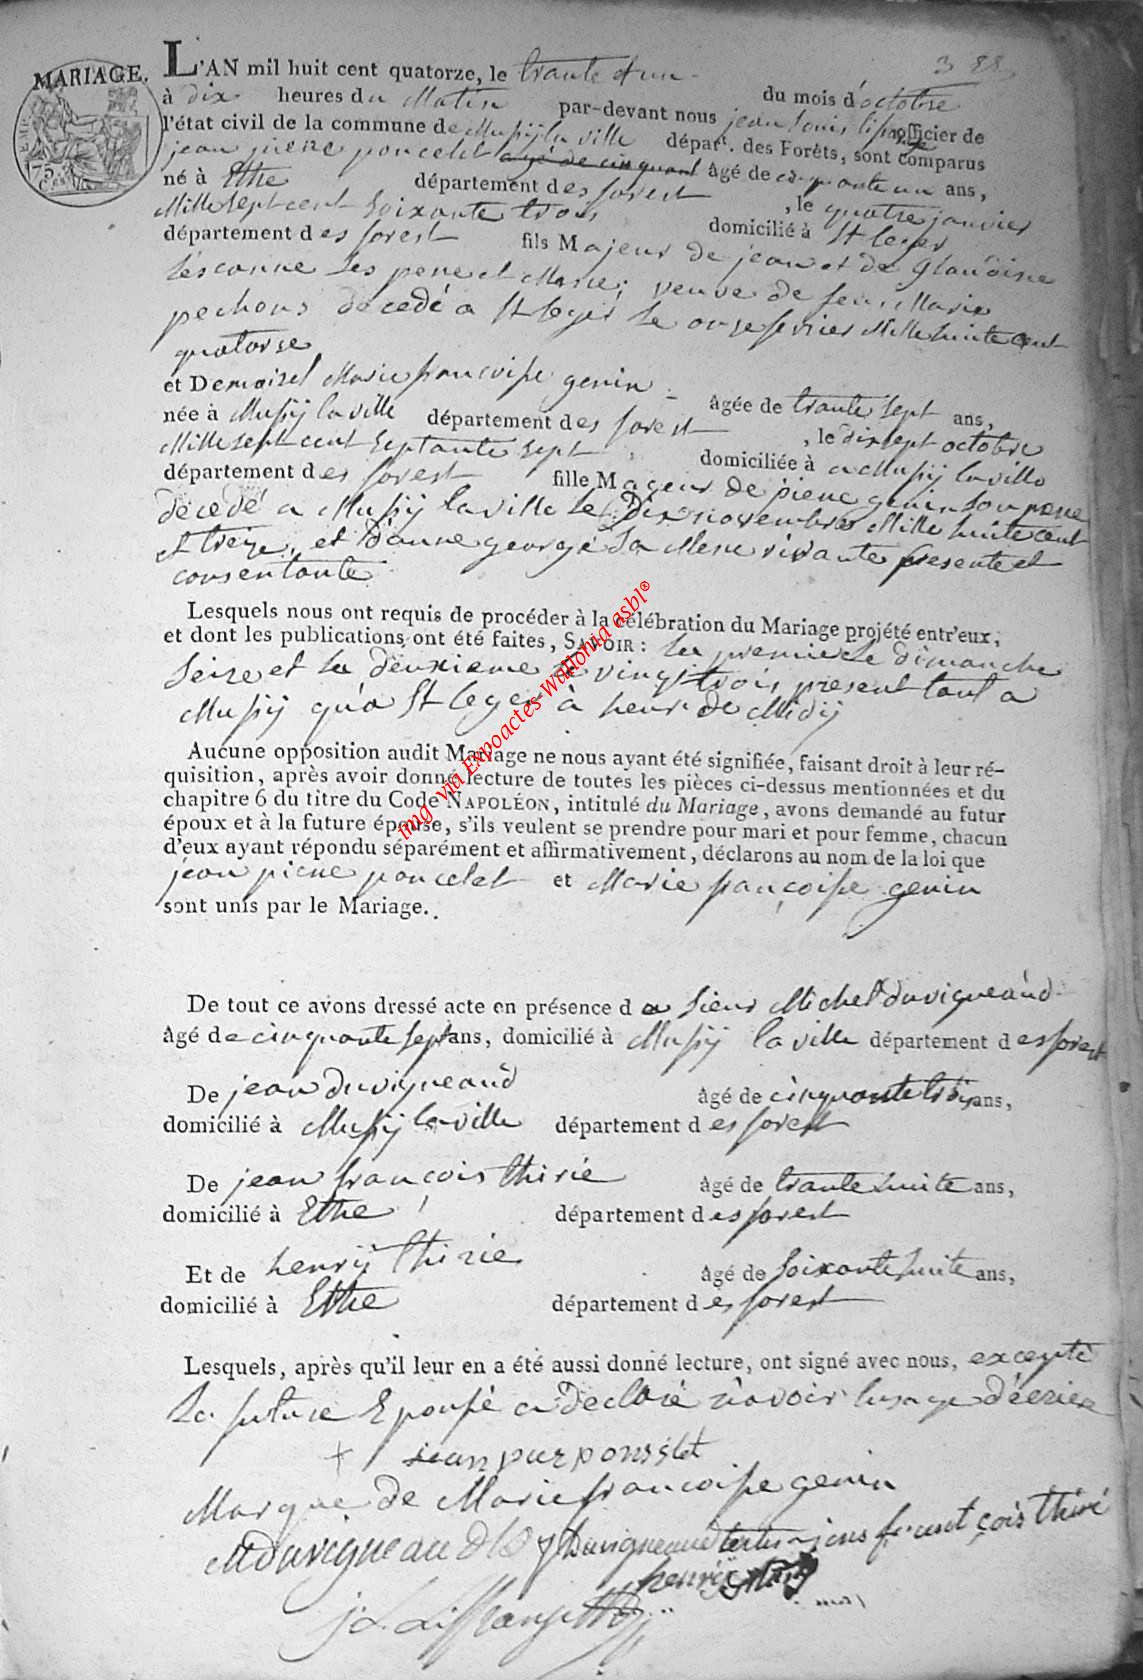 MARIAGE.
L'AN mil huit cent quatorze, le trante et un
du mois d'octobre
à dix heures du Matin par-devant nous jean louis officier de
l'état civil de la commune de Mussÿ la ville départ. des Forêts, sont comparus
jean piere poncelet agé de cinquant âgé de cinquante un ans,
né à Ethe département des forest , le quatre janvier
Mille sept cent soixante trois domicilié à St leger
département des forest fils Majeur de jean et de
ses pere et Mere; veuve de feu Marie
pechons décedé a St leger le onze fevrier Mille huite cent
quatorse
et Demoisel Marie francoise genin
née à Mussÿ la ville département des forest âgée de trante sept ans,
Mille sept cent septante sept , le dixsept octobre
département des forest domiciliée à a Mussÿ la ville
fille Mageur de piere genin son pere
décedé a Mussÿ la ville le Dix novembre Mille huite cent
et treize, et d'anne george sa Mere vivante presente et
consentante
Lesquels nous ont requis de procéder à la célébration du Mariage projété entr'eux,
et dont les publications ont été faites, SAVOIR: la premiere le dimanche
seize et la deuxieme le vingt trois present tant a
Mussÿ qu'a St leger à heur de Midÿ
Aucune opposition audit Mariage ne nous ayant été signifiée, faisant droit à leur ré-
quisition, après avoir donné lecture de toutes les pièces ci-dessus mentionnées et du
chapitre 6 du titre du Code NAPOLÉON, intitulé du Mariage, avons demandé au futur
époux et à la future épouse, s'ils veulent se prendre pour mari et pour femme, chacun
d'eux ayant répondu séparément et affirmativement, déclarons au nom de la loi que
jean piere poncelet et Marie françoise genin
sont unis par le Mariage.
De tout ce avons dressé acte en présence de Sieur Michel duvigneaud
âgé de cinquante sept ans, domicilié à Mussÿ la ville département des forest
De jean duvigneaud âgé de cinquante trois ans,
domicilié à Mussÿ la ville département des forest
De jean francois thirie âgé de trante huite ans,
domicilié à Ethe département des forest
Et de henrÿ thirie âgé de soixante huite ans,
domicilié à Ethe département des forest
Lesquels, après qu'il leur en a été aussi donné lecture, ont signé avec nous, excepté
La future Epouse a declaré n'avoir lusage décrier
jean pier ponsslet
Marque de Marie francoise genin
MDuvigneaud J Duvigneaud jens franct çois thiri
henrÿ
img. via Expoactes Wallonia asbl®